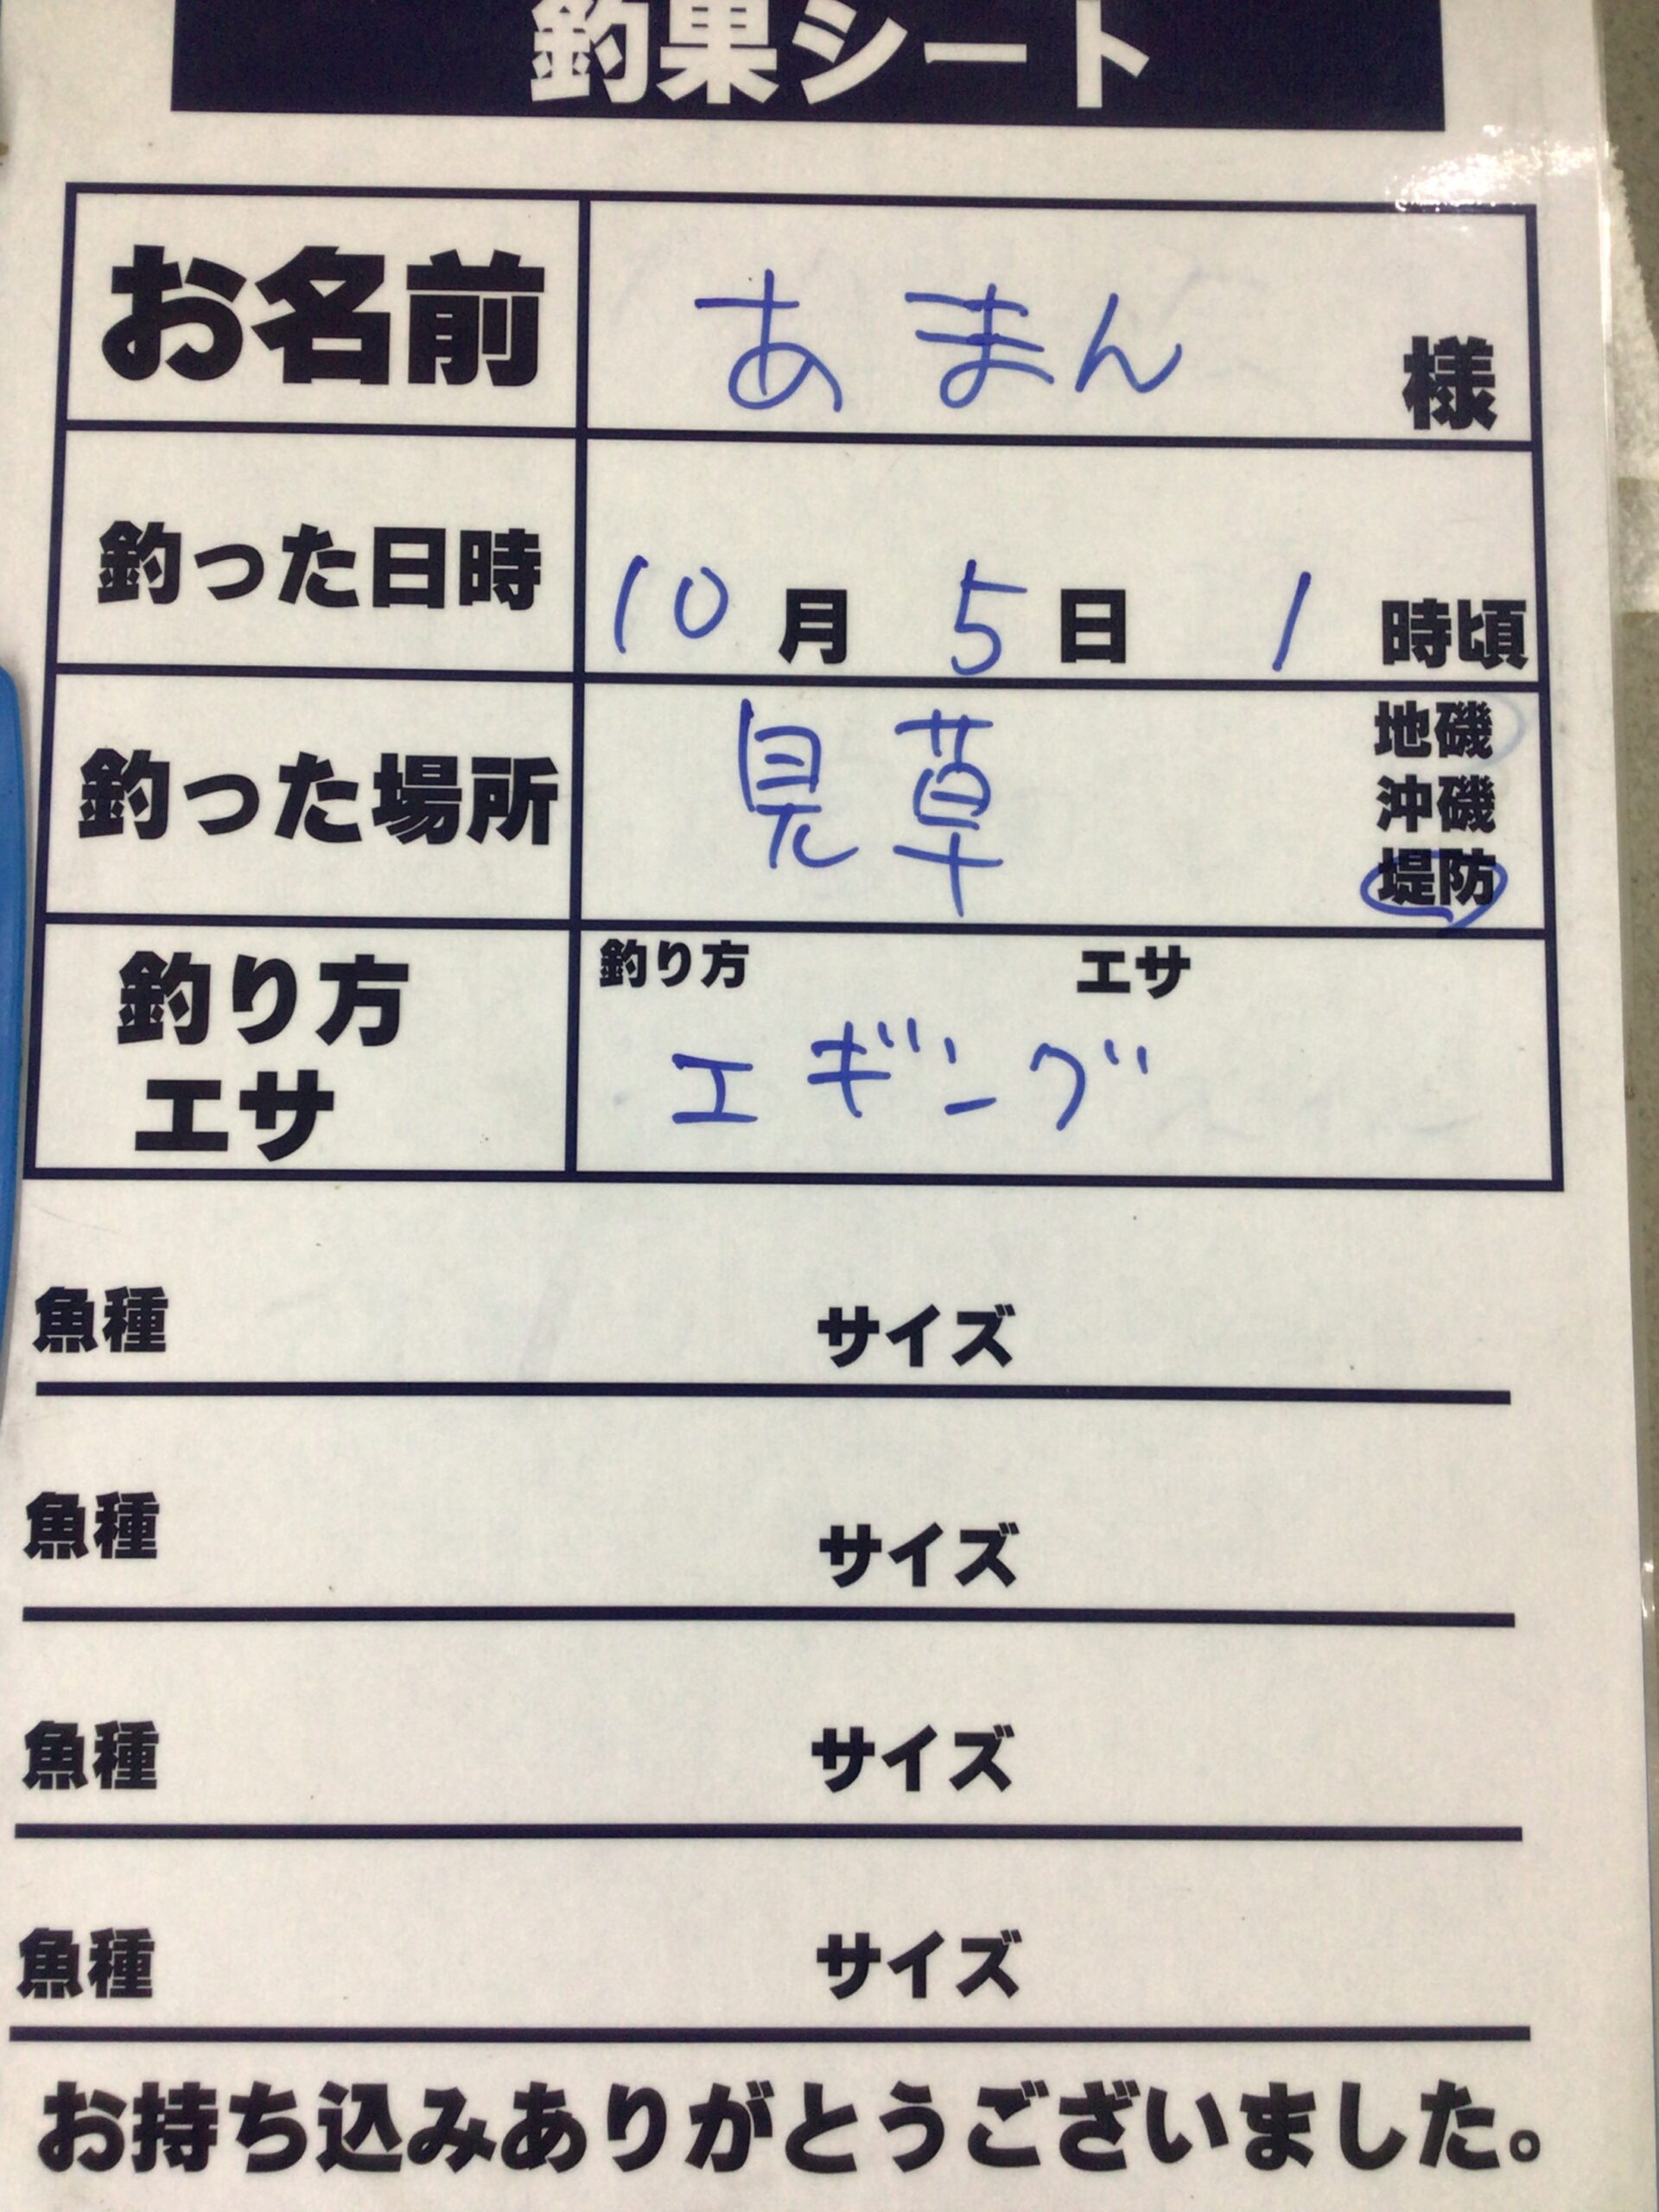 釣果シート
お名前 あまん 様
釣った日時 10月 5日 1時頃
釣った場所 見草 地磯
沖磯
堤防
釣り方 エサ
釣り方
エサ
エギング
魚種 サイズ
魚種 サイズ
魚種 サイズ
魚種 サイズ
お持ち込みありがとうございました。